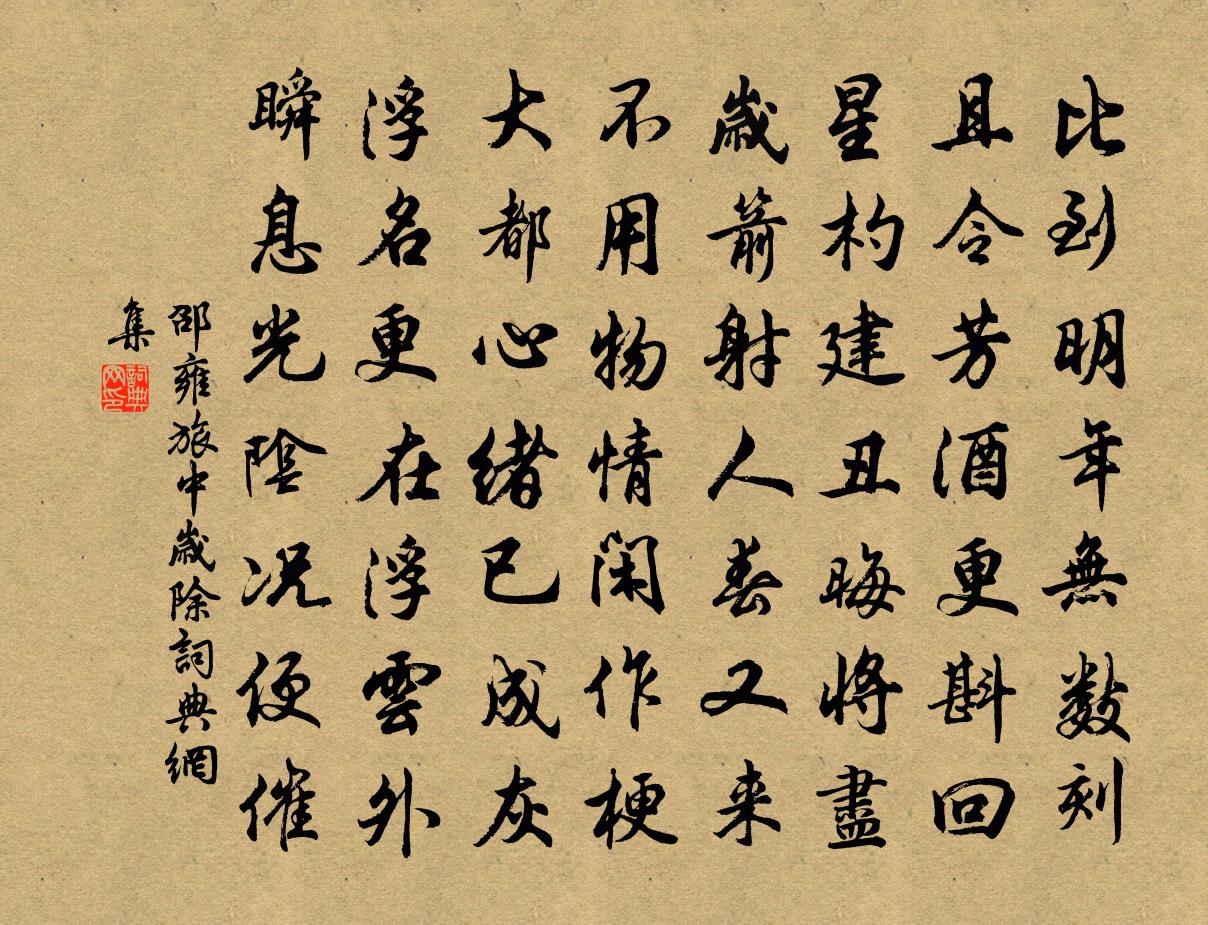 比到明年無数刻
且令芳酒更斟回
星杓建丑晦将盡
歳箭射人春又来
不用物情閑作梗
大都心緒已成灰
浮名更在浮雲外
瞬息光陰况便催
邵雍旅中歳除詞典網
集
詞典网印